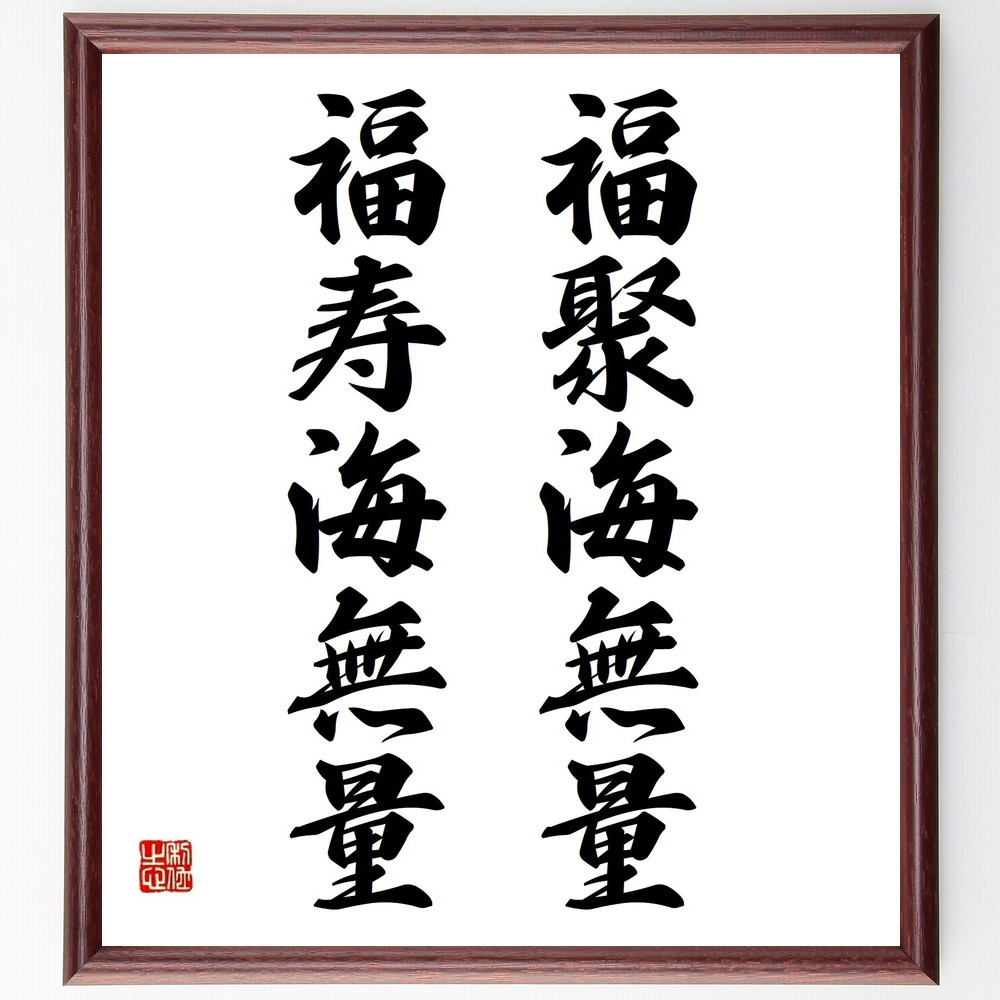 福聚海無量
福寿海無量